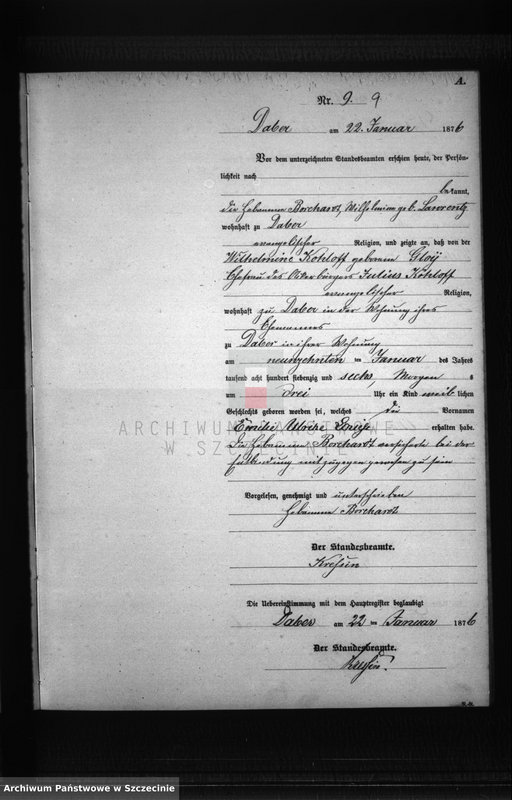 A.
Nr. 9. 9
Daber am 22. Januar 1876
Vor dem unterzeichneten Standesbeamten erschien heute, der Persön-
lichkeit nach
bekannt,
die Hebamme Borchardt, Wilhelmine geb. Lawrentz
wohnhaft zu Daber
evangelischer Religion, und zeigte an, daß von der
Wilhelmine Kohloff geborene Gloij
Ehefrau des Ackerbürgers Julius Kohloff
evangelischer Religion,
wohnhaft zu Daber in der Wohnung ihres
Ehemannes
zu Daber in ihrer Wohnung
am neunzehnten ten Januar des Jahres
tausend acht hundert siebenzig und sechs, Morgens
um Drei Uhr ein Kind weiblichen
Geschlechts geboren worden sei, welches die Vornamen
Emilie Ulrike Louise erhalten habe.
Die Hebamme Borchardt versicherte bei der
Entbindung mit zugegen gewesen zu sein
Vorgelesen, genehmigt und unterschrieben
Hebamme Borchardt
Der Standesbeamte.
Die Uebereinstimmung mit dem Hauptregister beglaubigt
Daber am 22 ten Januar 1876
Der Standesbeamte.
ARCHIWUM PAŃSTWOWE
W SZCZECINIE
Archiwum Państwowe w Szczecinie